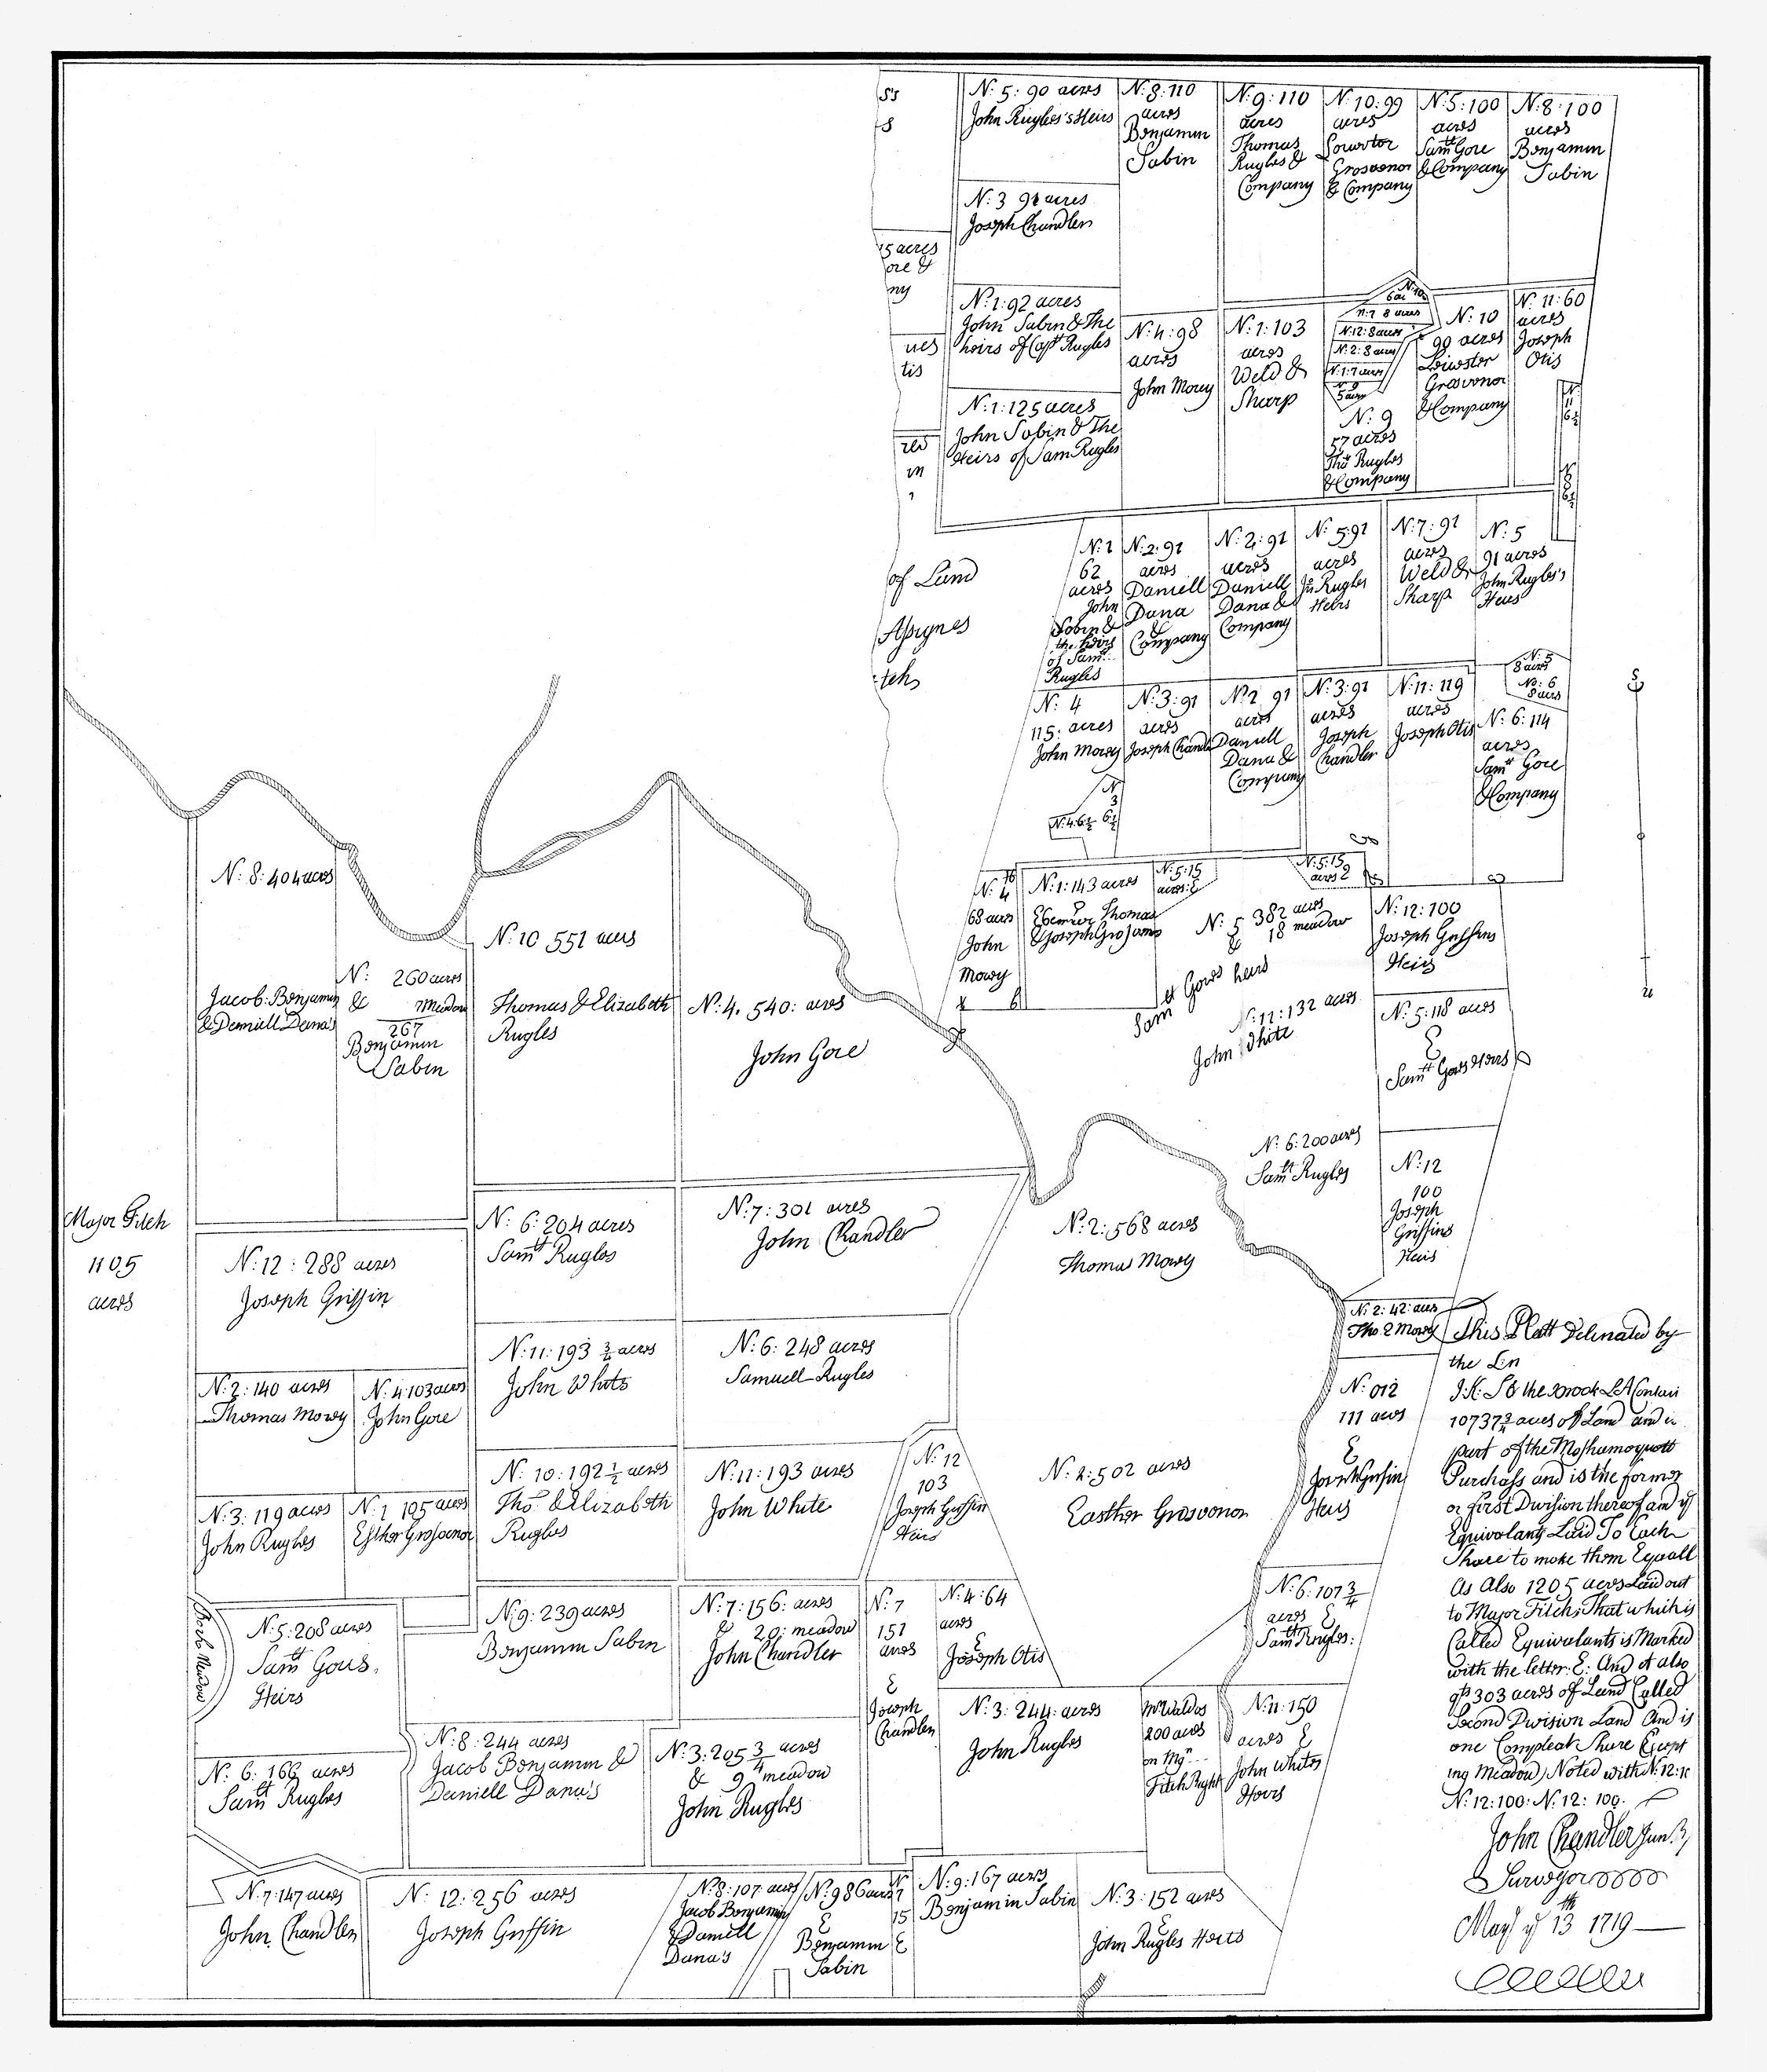 N: 5: 90 acres
John Rugles's Heirs
N: 8: 110
acres
Benjamin
Sabin
N: 9: 110
acres
Thomas
Rugles &
Company
N: 10: 99
acres
Grosvenor
& Company
N: 5: 100
acres
Samll Gore
& Company
N: 8: 100
acres
Benjamin
Sabin
N: 3 91 acres
Joseph Chandler
15 acres
ore &
ny
N: 1: 92 acres
John Sabin & The
heirs of Capt Rugles
N: 4: 98
acres
John Mowy
N: 1: 103
acres
Weld &
Sharp
N: 10
6 ac
N: 7 8 acres
N: 12: 8 acres
N: 2: 8 acres
N: 1: 7 acres
N: 9
5 acres
N: 9
57 acres
Tho Rugles
& Company
N: 10
99 acres
Grosvenor
& Company
N: 11: 60
acres
Joseph
Otis
N
11
6½
res
tis
N: 1: 125 acres
John Sabin & The
Heirs of Sam Rugles
red
in
of Land
Assignes
tch
N: 1
62
acres
John
Sabin &
the heirs
of Samll
Rugles
N: 2: 91
acres
Daniell
Dana
&
Company
N: 2: 91
acres
Daniell
Dana &
Company
N: 5: 91
acres
Jn Rugles
Heirs
N: 7: 91
acres
Weld &
Sharp
N: 5
91 acres
John Rugles's
Heirs
N: 4
115: acres
John Mowy
N: 3: 91
acres
Joseph Chandl
N: 2 91
acres
Daniell
Dana &
Company
N: 3: 91
acres
Joseph
Chandler
N: 11: 119
acres
Joseph Otis
N: 5
8 acres
No: 6
8 acres
N: 6: 114
acres
Samll Gore
& Company
N
3
6½
N: 4: 6½
N: 4
68 acres
John
Mowy
N: 1: 143 acres
E
Ebenezer Thomas
& Joseph Grosvenor
N: 5: 15
acres: E
N: 5: 15
acres 2
N: 5 382 acres
& 18 meadow
Samll Gores heirs
N: 12: 100
Joseph Griffins
Heirs
N: 11: 132 acres
John White
N: 5: 118 acres
E
Samll Gores Heirs
N: 6: 200 acres
Samll Rugles
N: 12
100
Joseph
Griffins
Heirs
N: 8: 404 acres
Jacob: Benjamin
& Daniell Dana's
N: 260 acres
& 7 Meadow
267
Benjamin
Sabin
N: 10 551 acres
Thomas & Elizabeth
Rugles
N: 4. 540: acres
John Gore
Major Fitch
1105
acres
N: 6: 204 acres
Samll Rugles
N: 7: 301 acres
John Chandler
N: 2: 568 acres
Thomas Mowy
N: 12: 288 acres
Joseph Griffin
N: 2: 42: acres
Tho E Mowy
N: 11: 193 ¾ acres
John White
N: 6: 248 acres
Samuell Rugles
N: 2: 140 acres
Thomas Mowy
N: 4: 103 acres
John Gore
N: 012
111 acres
E
Joseph Griffin
Heirs
N: 10: 192 ½ acres
Tho: & Elizabeth
Rugles
N: 11: 193 acres
John White
N: 12
103
Joseph Griffin
Heirs
N: 1: 502 acres
Easther Grosvenor
N: 3: 119 acres
John Rugles
N: 1 105 acres
Esther Grosvenor
N: 5: 208 acres
Samll Gores
Heirs
Meadow
N: 9: 239 acres
Benjamin Sabin
N: 7: 156: acres
& 20: meadow
John Chandler
N: 7
151
acres
E
Joseph
Chandler
N: 4: 64
acres
E
Joseph Otis
N: 6: 107 ¾
acres E
Samll Rugles:
N: 6: 166 acres
Samll Rugles
N: 8: 244 acres
Jacob Benjamin &
Daniell Dana's
N: 3: 205 ¾ acres
& 9 ¼ meadow
John Rugles
N: 3: 244: acres
John Rugles
Mr Waldos
200 acres
on Mgr
Fitch Right
N: 11: 150
acres E
John Whites
Heirs
N: 7: 147 acres
John Chandler
N: 12: 256 acres
Joseph Griffin
N: 8: 107 acres
Jacob Benjamin
& Daniell
Dana's
N: 9 86 acres
E
Benjamin
Sabin
N
7
15
E
N: 9: 167 acres
Benjamin Sabin
N: 3: 152 acres
E
John Rugles Heirs
This Platt Delinated by
the Lin
I: K: S & the Brook L A Contain
10737¾ acres of Land and is
part of the Moshamoquott
Purchass and is the former
or first Division thereof and ye
Equivolants Laid To Each
Share to make them Equall
As Also 1205 acres Laid out
to Major Fitch; That which is
Called Equivalants is Marked
with the letter: E: And it also
303 acres of Land Called
Second Division Land And is
one Compleat Share Except
ing Meadow, Noted with N: 12: 1
N: 12: 100: N: 12: 100.
John Chandler Jun
Surveyor
May ye 13th 1719